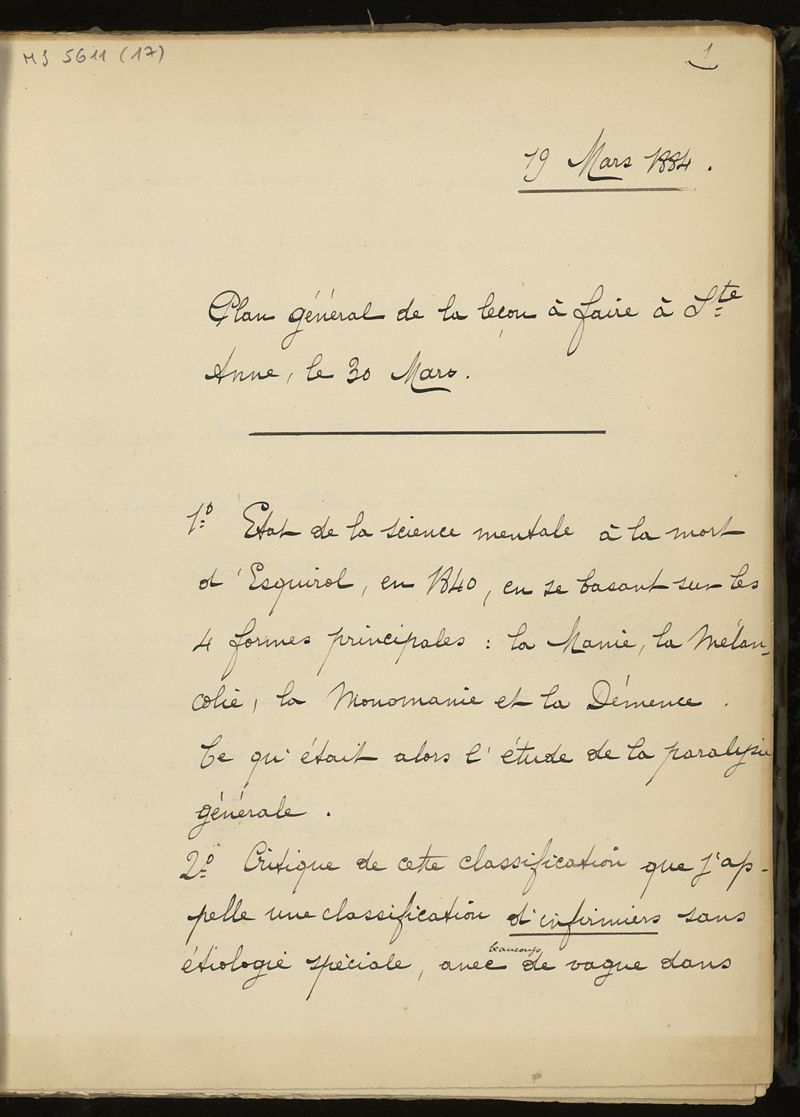 MS 5611 (17)
1
19 Mars 1884.
Plan général de la leçon à faire à Ste
Anne, le 30 Mars.
1o Etat de la science mentale à la mort
d'Esquirol, en 1840, en se basant sur les
4 formes principales : la Manie, la Mélan-
colie, la Monomanie et la Démence.
Ce qu'était alors l'étude de la paralysie
générale.
2o Critique de cette classification que j'ap-
pelle une classification d'infirmiers sans
étiologie spéciale, avec beaucoup de vague dans